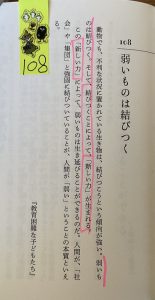 108
108
弱いものは結びつく
動物でも、不利な状況に置かれている生き物は、結びつこうという傾向が強い。弱いも
のは結びつく。そして、「結びつくことによって」「新しい力」が生まれる。
この「新しい力」によって、弱いものは生き延びることができるのだ。人間が、「社
会」や「集団」と強固に結びついていることが、人間が「弱い」ということの本質といえ
る。
『教育困難な子どもたち』